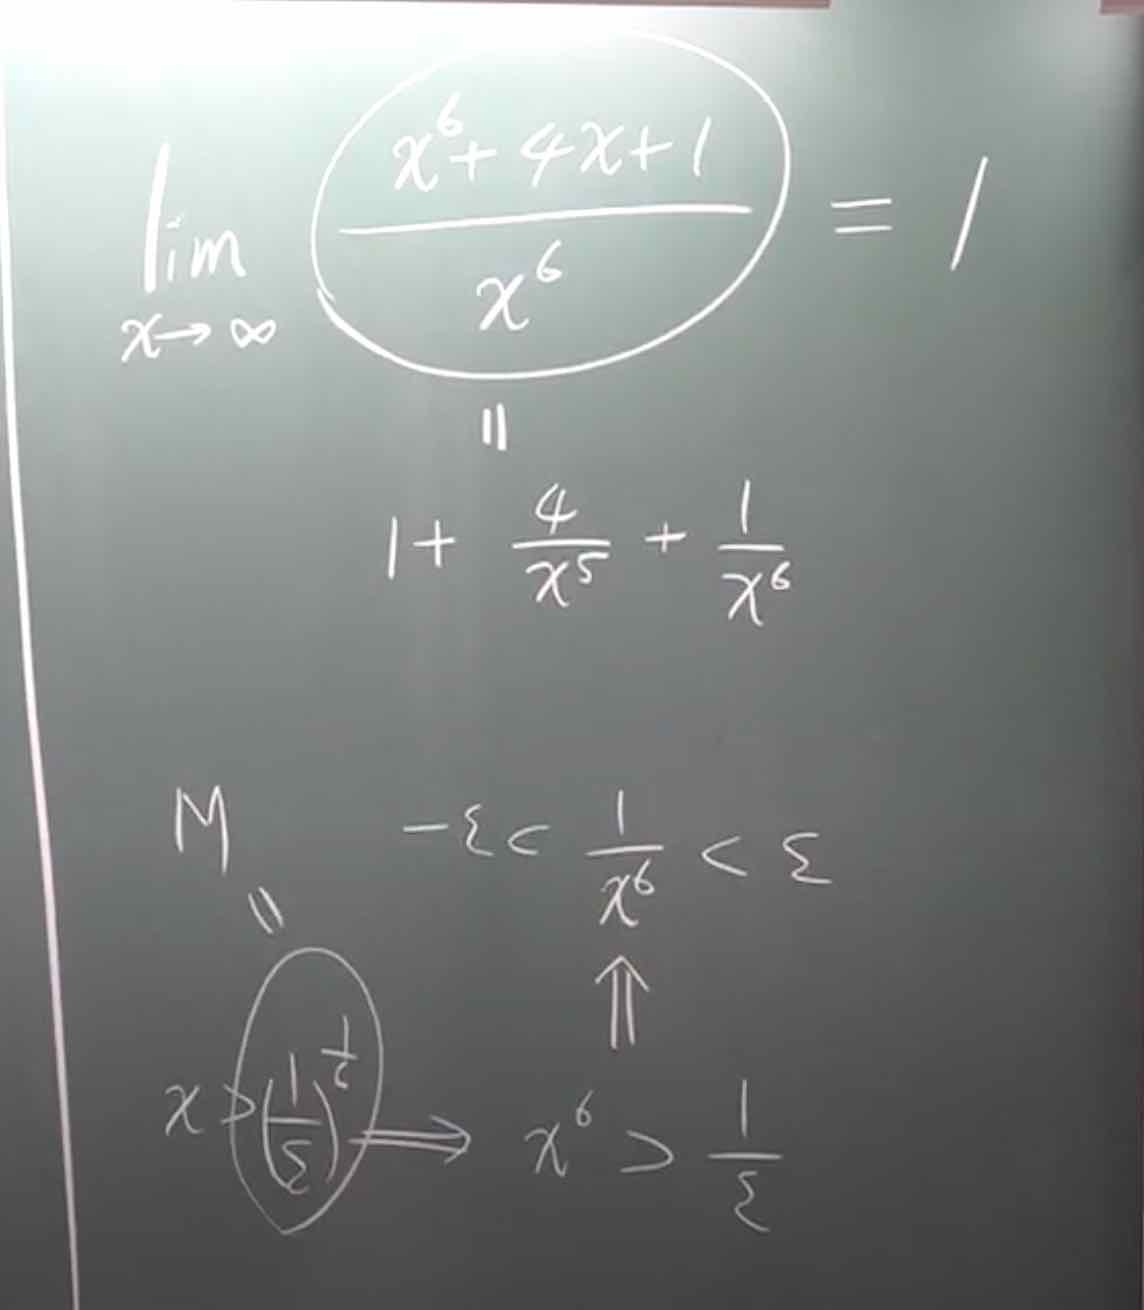 lim x→∞ (x⁶ + 4x + 1)/x⁶ = 1
=
1 + 4/x⁵ + 1/x⁶
M -ε < 1/x⁶ < ε
= ⇑
x > (1/ε)^(1/6) ⟹ x⁶ > 1/ε